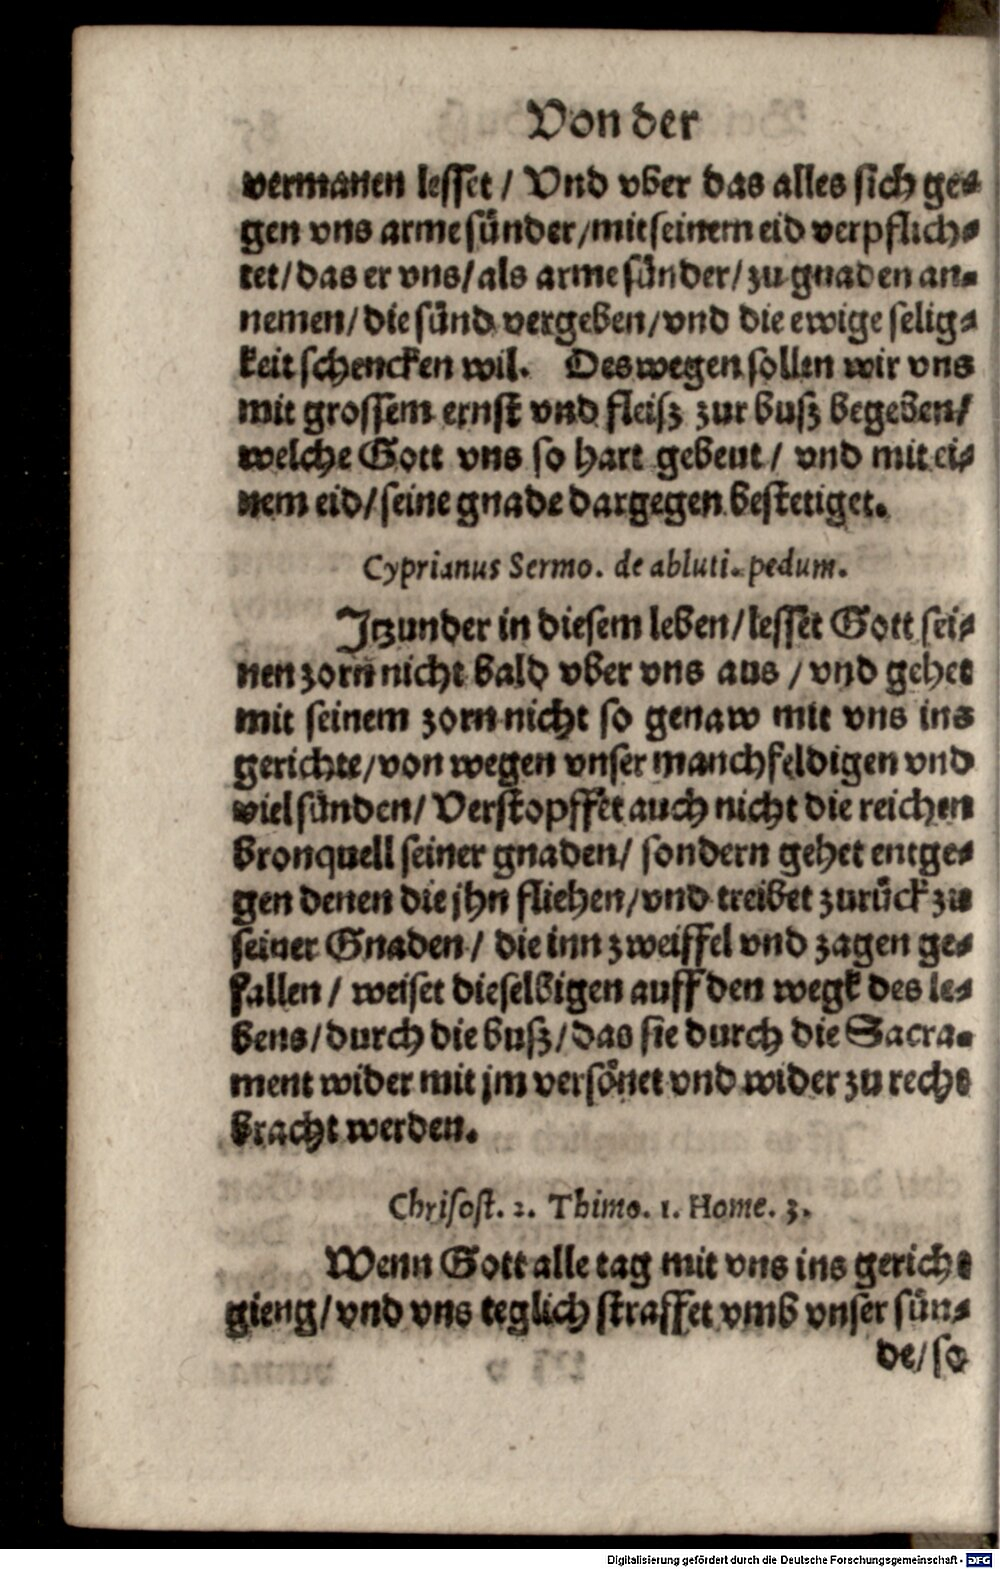 Von der
vermanen lesset / Vnd vber das alles sich ge⸗
gen vns arme sünder/mit seinem eid verpflich⸗
tet/das er vns/als arme sünder/zu gnaden an⸗
nemen/die sünd vergeben/vnd die ewige selig⸗
keit schencken wil. Deswegen sollen wir vns
mit grossem ernst vnd fleisz zur busz begeben/
welche Gott vns so hart gebeut / vnd mit ei⸗
nem eid/seine gnade dargegen bestetiget.
Cyprianus Sermo. de abluti. pedum.
Itzunder in diesem leben/lesset Gott sei⸗
nen zorn nicht bald vber vns aus / vnd gehet
mit seinem zorn nicht so genaw mit vns ins
gerichte/von wegen vnser manchfeldigen vnd
viel sünden/ Verstopffet auch nicht die reichen
bronquell seiner gnaden/ sondern gehet entge⸗
gen denen die jhn fliehen/vnd treibet zurück zu
seiner Gnaden / die inn zweiffel vnd zagen ge⸗
fallen / weiset dieselbigen auff den wegk des le⸗
bens/durch die busz/das sie durch die Sacra⸗
ment wider mit jm versönet vnd wider zu recht
bracht werden.
Chrisost. 2. Thimo. 1. Home. 3.
Wenn Gott alle tag mit vns ins gericht
gieng/vnd vns teglich straffet vmb vnser sün⸗
de/ so
Digitalisierung gefördert durch die Deutsche Forschungsgemeinschaft - DFG